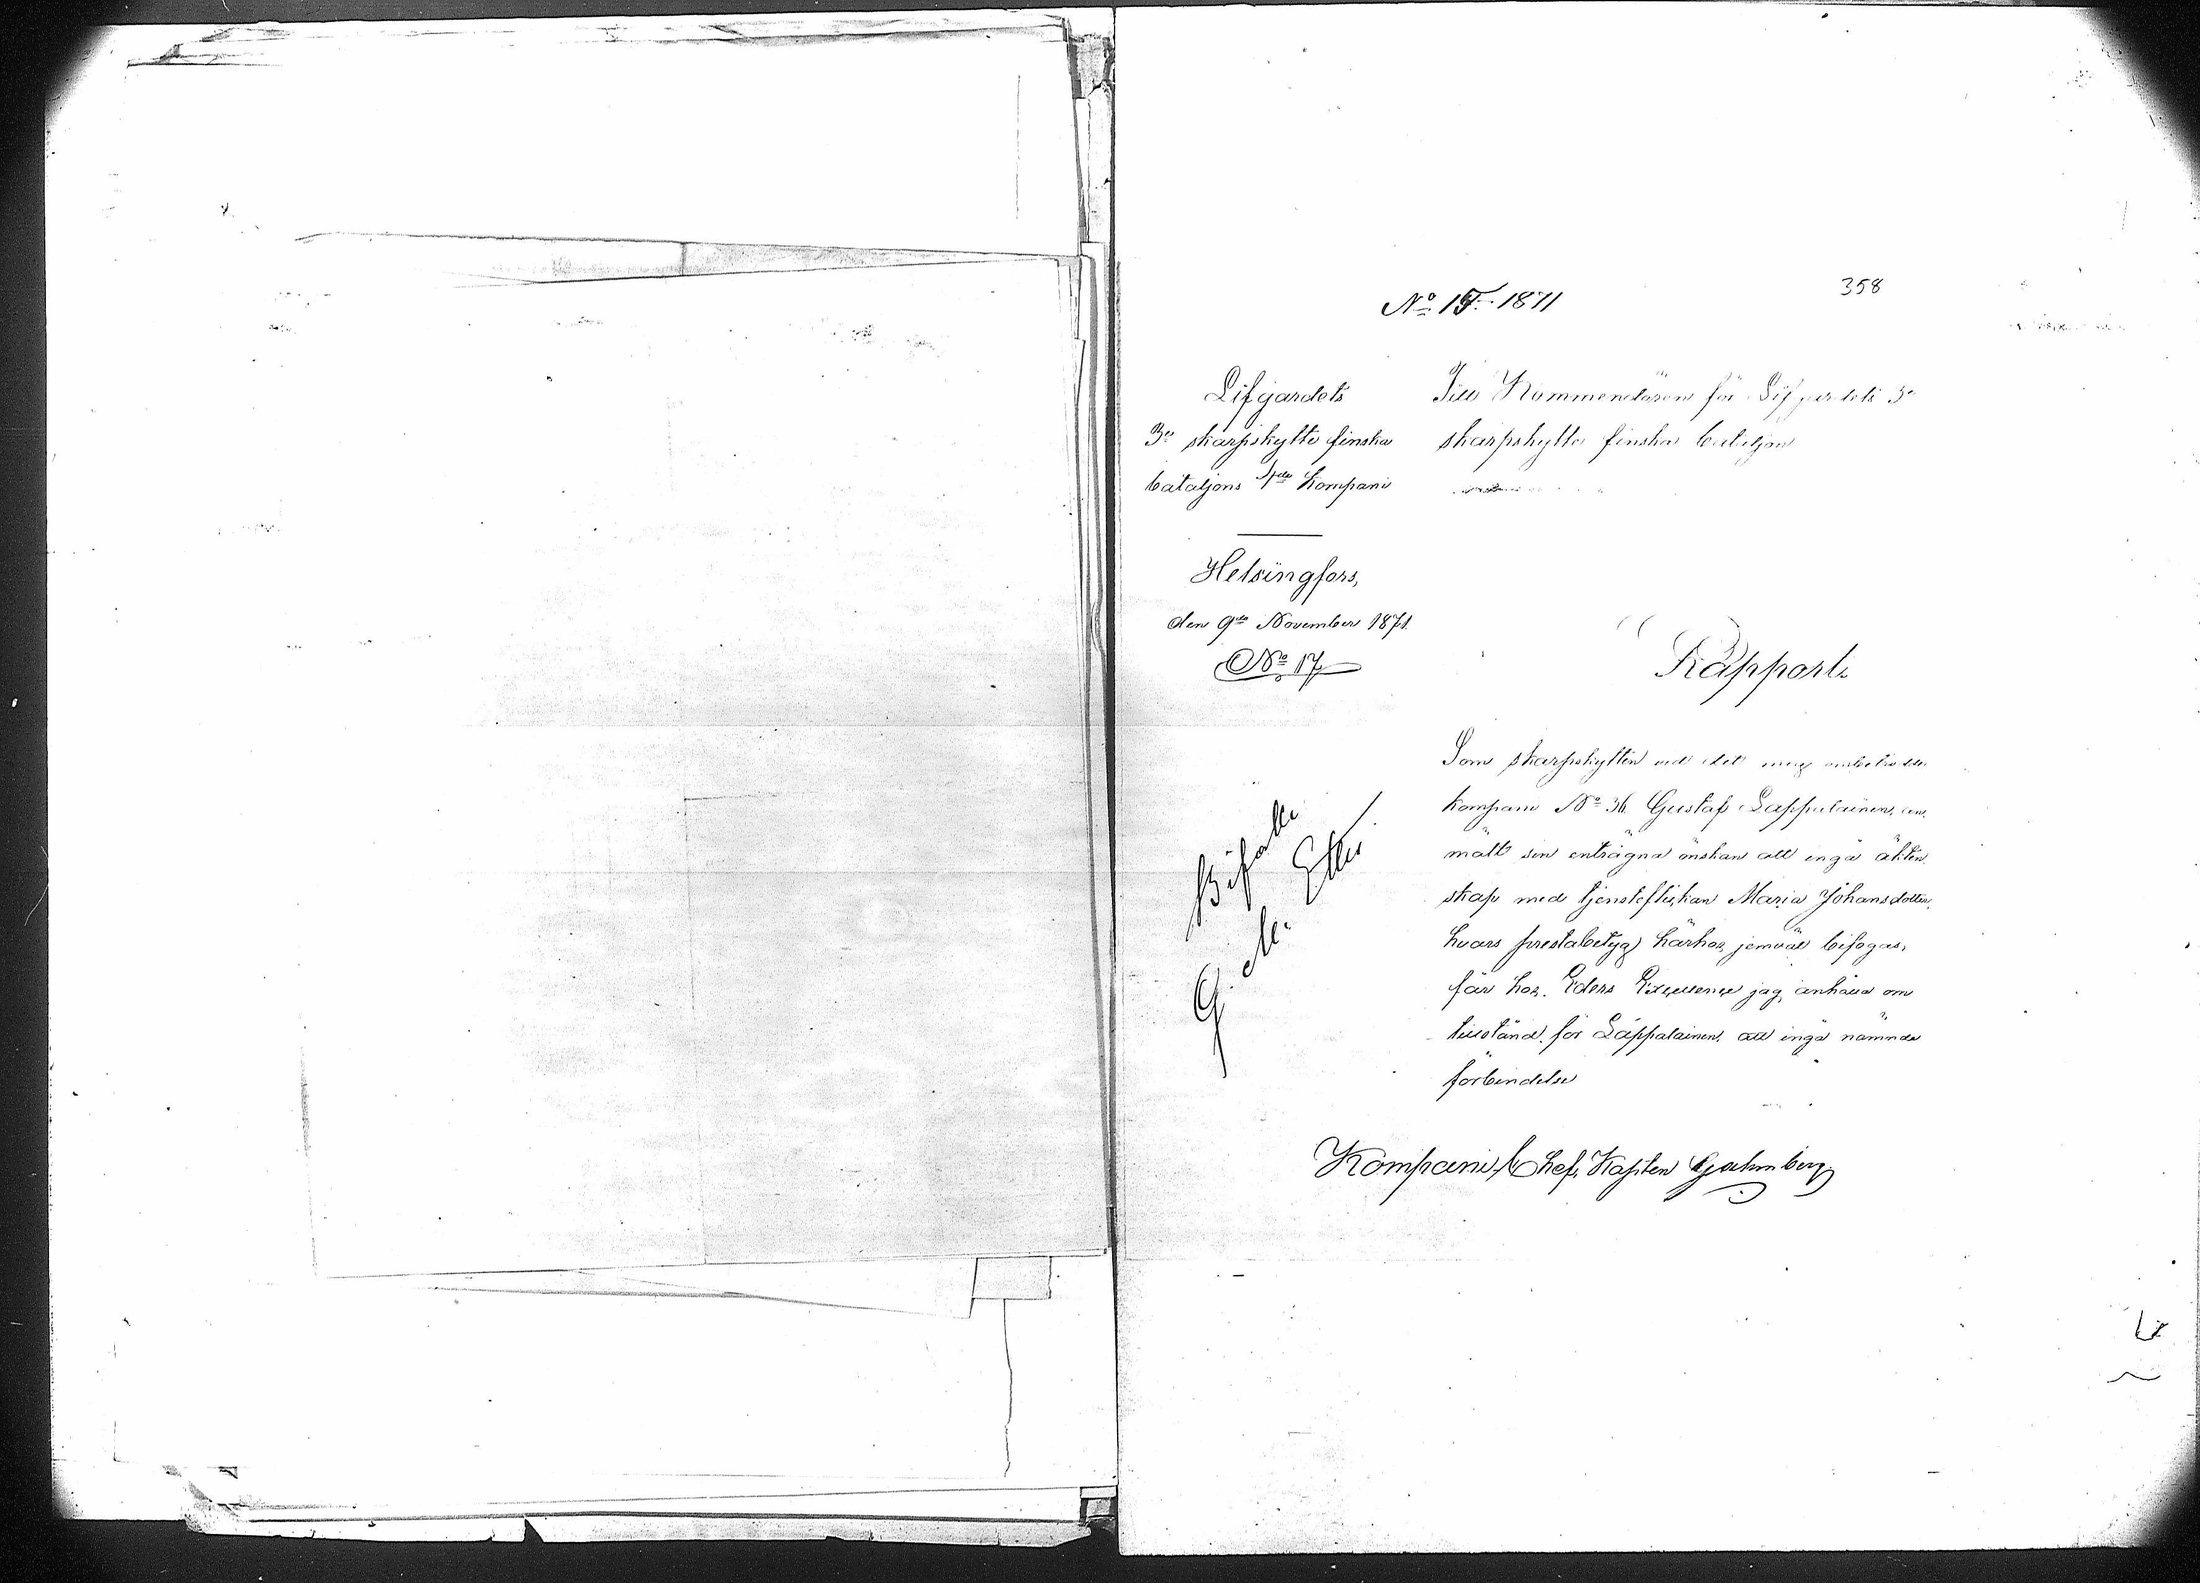 358
Lifgardets
3e skarpskytte finska
bataljons 1sta Kompani
Helsingfors,
den 9de November 1871.
No 17
Till Kommendören för Lifgardets 3e
skarpskytte finska bataljon
Rapport.
Som skarpskytten vid det mig anbetrodde
kompani No 36 Gustaf Lappalainen, an-
mält sin enträgna önskan att ingå äkten-
skap med tjensteflickan Maria Johansdotter,
hvars prestabetyg härhos jemväl bifogas,
får hos Eders Excellence jag anhålla om
tillstånd för Lappalainen att ingå nämnde
förbindelse
Kompani Chef, Kapten
Bifalle
G. Etter